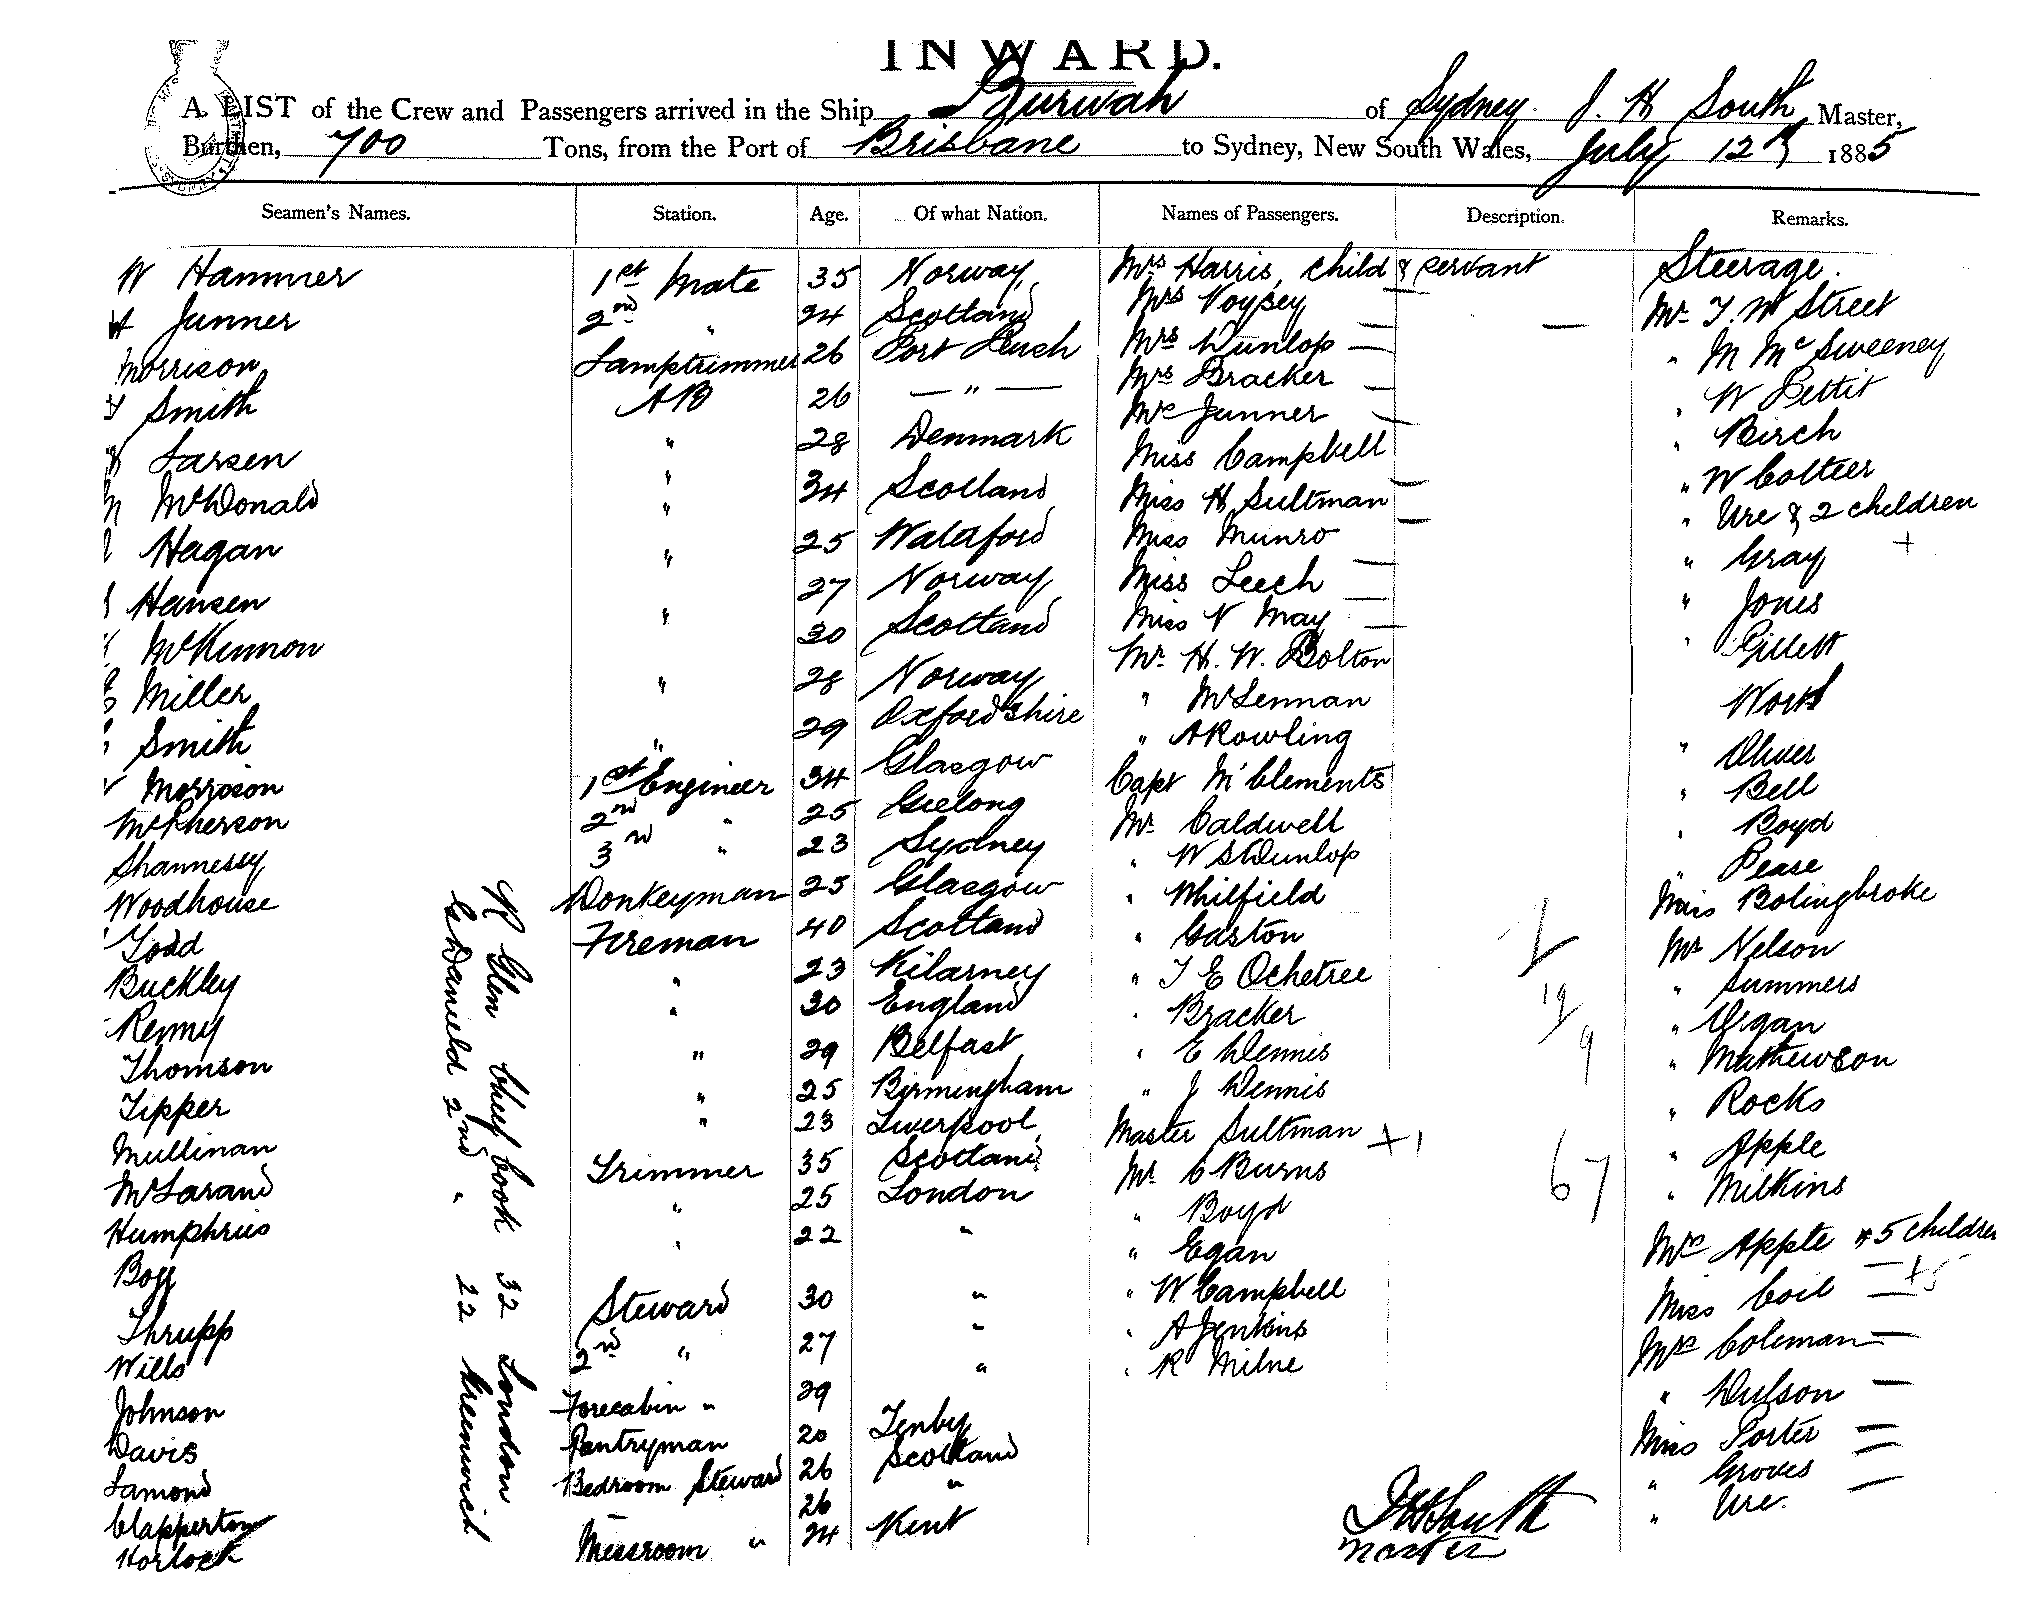 INWARD.
A LIST of the Crew and Passengers arrived in the Ship Burwah of Sydney J. H South Master,
Burthen, 700 Tons, from the Port of Brisbane to Sydney, New South Wales, July 12th 1885
Seamen's Names. Station. Age. Of what Nation. Names of Passengers. Description. Remarks.
W Hammer 1st Mate 35 Norway Mrs Harris, child & servant Steerage.
Junner 2nd " 24 Scotland Mrs Voysey — Mr T. W Street
Morrison Lamptrimmer 26 Port Mrs Dunlop — " M McSweeney
Smith AB 26 — " — Mrs Bracker — " W Pettit
Larsen " 28 Denmark Mrs Junner — " Birch
McDonald " 34 Scotland Miss Campbell " W Coltter
Hagan " 25 Waterford Miss H Sultman — " Ure & 2 children
Hansen " 27 Norway Miss Munro — " Gray +
McKinnon " 30 Scotland Miss Leech — " Jones
Miller " 28 Norway Miss N May — " Gillett
Smith " 29 Oxfordshire Mr H. W. Bolton
Morrison 1st Engineer 34 Glasgow " McLennan " Oliver
McPherson 2nd " 25 Geelong " A Rowling " Bell
Shannessy 3rd " 23 Sydney Capt McClements " Boyd
Woodhouse Donkeyman 25 Glasgow Mr Caldwell " Pease
Todd Fireman 40 Scotland " W S Dunlop Miss Bolingbroke
Buckley " 23 Kilarney " Whilfield Mr Nelson
Renny " 30 England " Gaston " Summers
Thomson " 29 Belfast " T E Ochetree
Tipper " 25 Birmingham " Bracker " Mathewson
Mullinan " 23 Liverpool " E Dennis " Rocks
McLarand Trimmer 35 Scotland " J Dennis " Apple
Humphries " 25 London Master Sultman + 1 " Milkins
" 22 " Mr C Burns Mrs Apple & 5 children
Thrupp Steward 30 " " Boyd Miss Coil — + 5
Wills 2nd " 27 " " Egan Mrs Coleman —
Johnson Forecabin " 29 " " W Campbell " Dulson —
Davis Pantryman 20 Tenby " A Jenkins Miss Porter —
Lamond Bedroom Steward 26 Scotland " R Milne " Groves —
Clapperton 26 " " Ure. —
Horlock Messroom " 24 Kent
R Glen Chief Cook 32 London
G Danield 2nd " 22 Greenwich
19
9
67
J H South
Master